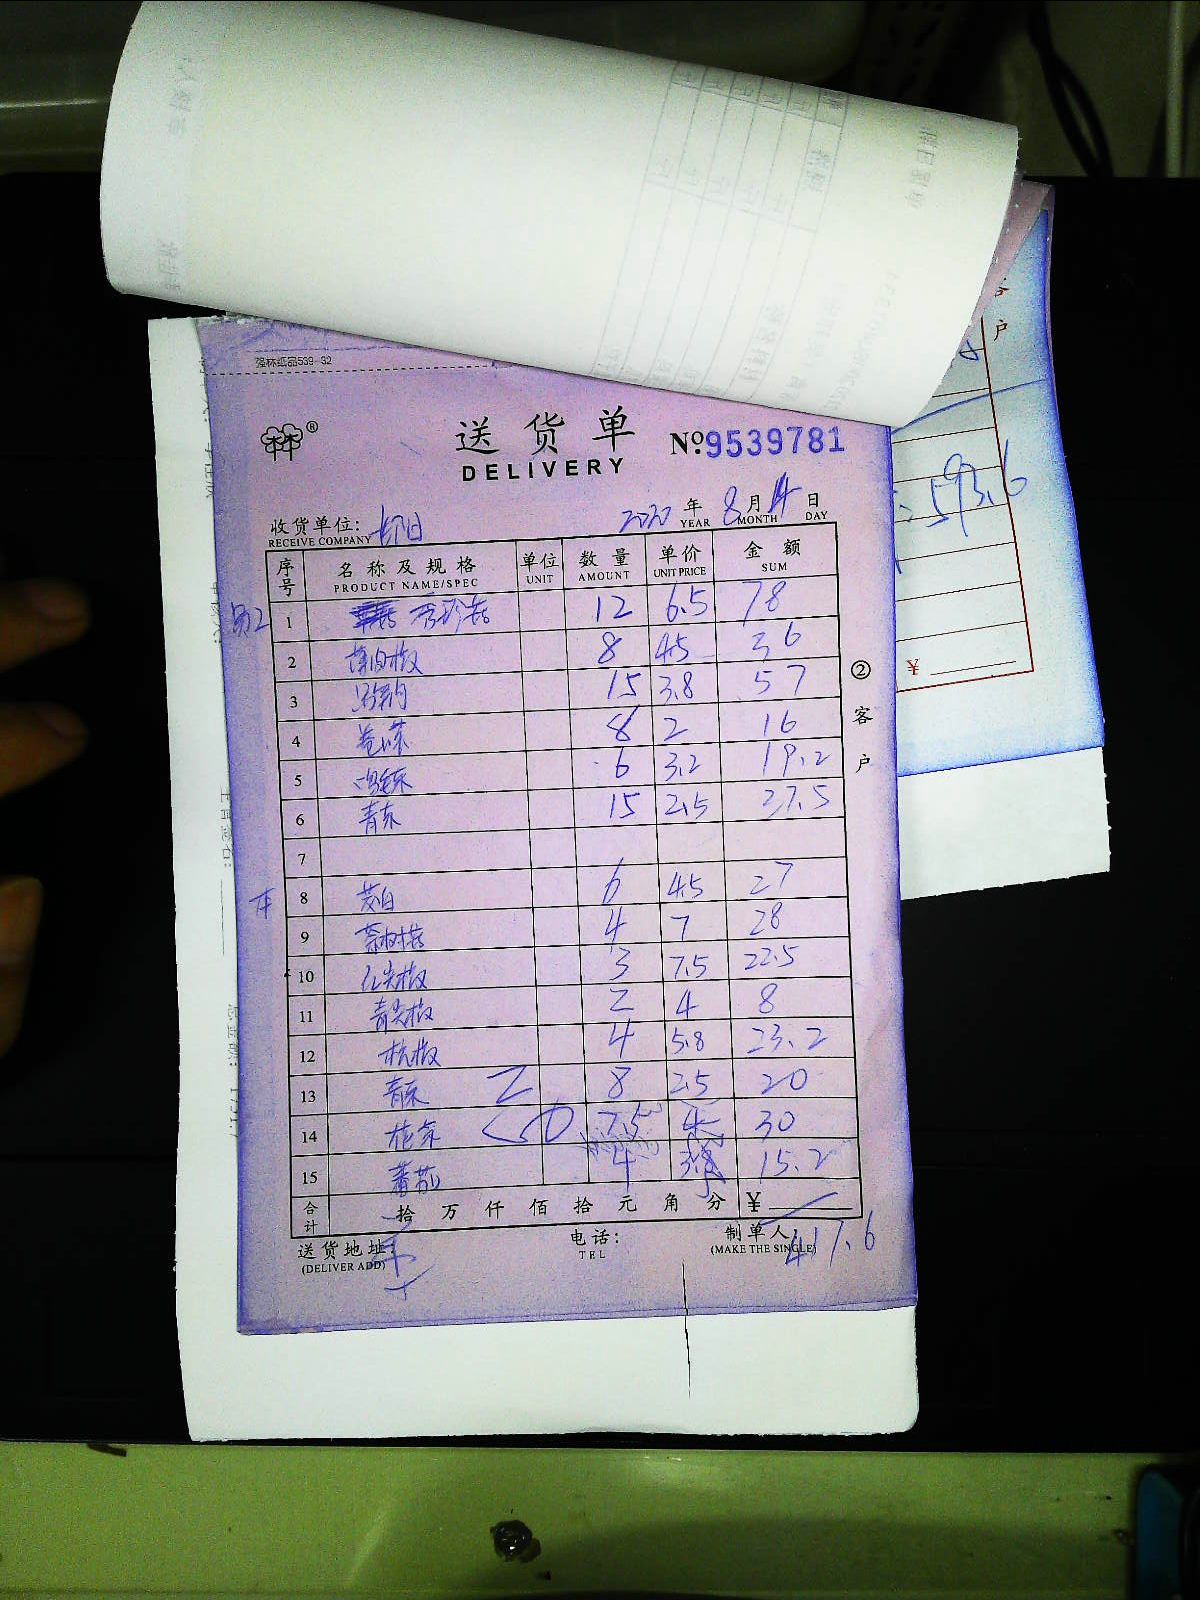 强林纸品539-32
送货单
DELIVERY
№9539781
收货单位:
RECEIVE COMPANY
2020 年 8 月 14 日
YEAR MONTH DAY
序号 名称及规格 单位 数量 单价 金额
PRODUCT NAME/SPEC UNIT AMOUNT UNIT PRICE SUM
1 秀珍菇 12 6.5 78
2 8 4.5 36
3 15 3.8 57
4 8 2 16
5 鸡毛菜 6 3.2 19.2
6 青菜 15 2.5 37.5
7
本 8 茭白 6 4.5 27
9 茶树菇 4 7 28
10 红尖椒 3 7.5 22.5
11 青尖椒 2 4 8
12 杭椒 4 5.8 23.2
13 青菜 8 2.5 20
14 花菜 7.5 4 30
15 4 3.8 15.2
合计 拾 万 仟 佰 拾 元 角 分 ¥
417.6
送货地址:
(DELIVER ADD)
电话:
TEL
制单人:
(MAKE THE SINGLE)
②客户
593.6
客户
¥